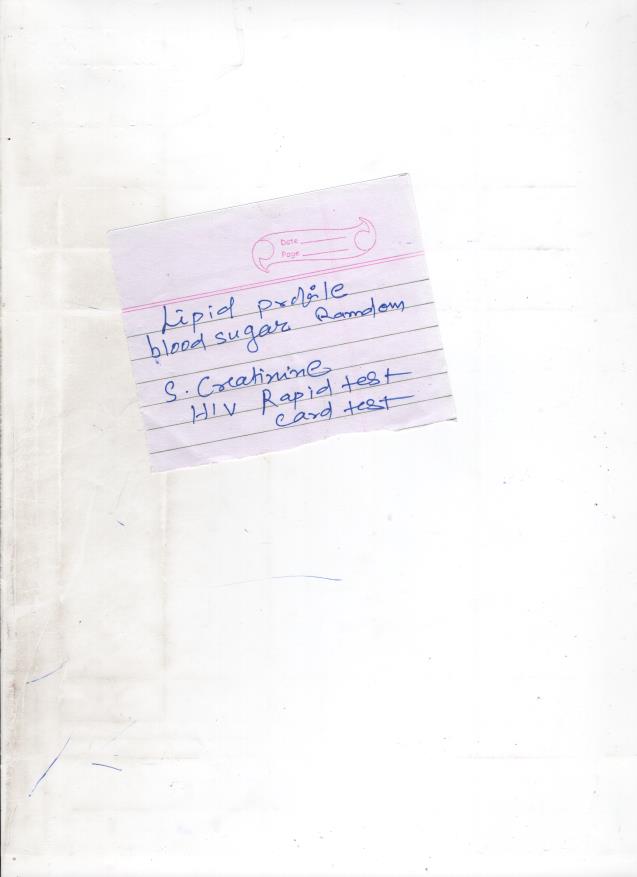 Date
Page
Lipid profile
blood sugar Random
S. Creatinine
HIV Rapid test
card test